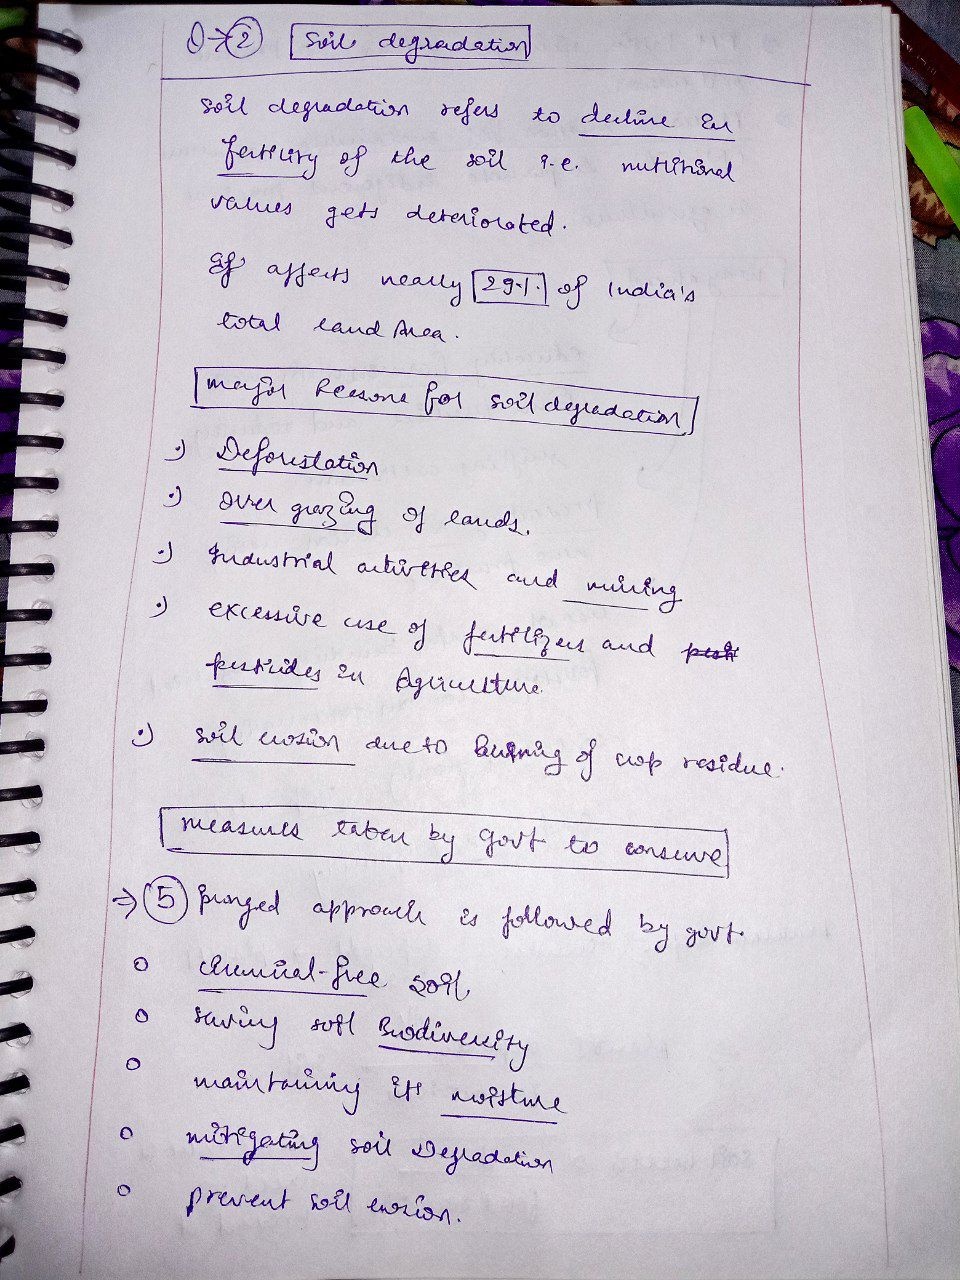 Q → 2 Soil degradation
Soil degradation refers to decline in
fertility of the soil i.e. nutritional
values gets deteriorated.
It affects nearly 29% of India's
total land Area.
major Reasons for soil degradation
Deforestation
over grazing of lands.
Industrial activities and mining
excessive use of fertilizers and
pesticides in Agriculture.
soil erosion due to Burning of crop residue.
measures taken by govt to conserve
⇒ 5 pronged approach is followed by govt.
chemical-free soil
saving soil Biodiversity
maintaining its moisture
mitigating soil Degradation
prevent soil erosion.